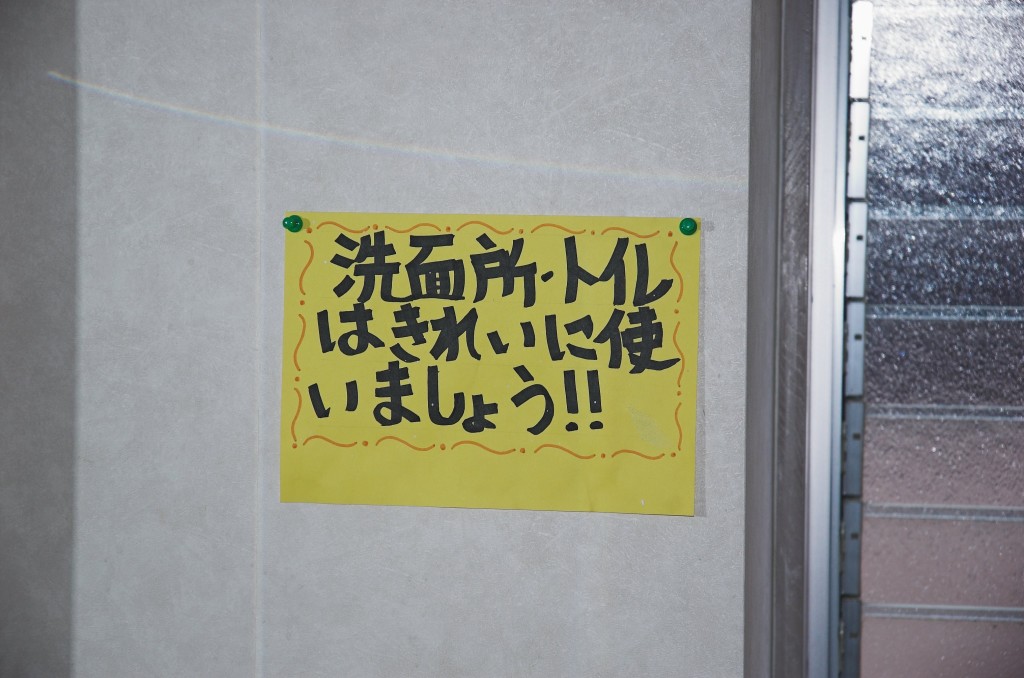 洗面所・トイレ
はきれいに使
いましょう!!